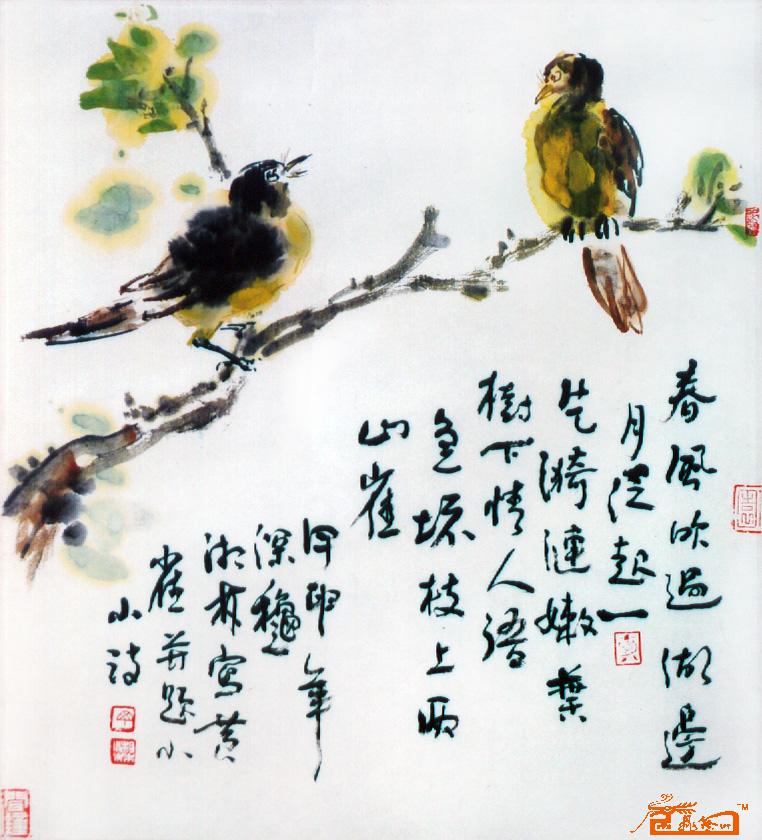 春風吹過湖邊
月泛起一
片漪漣嫩葉
樹下情人語
急壞枝上兩
山雀
甲申年
深穐
湘林寫黃
雀并題小
小詩